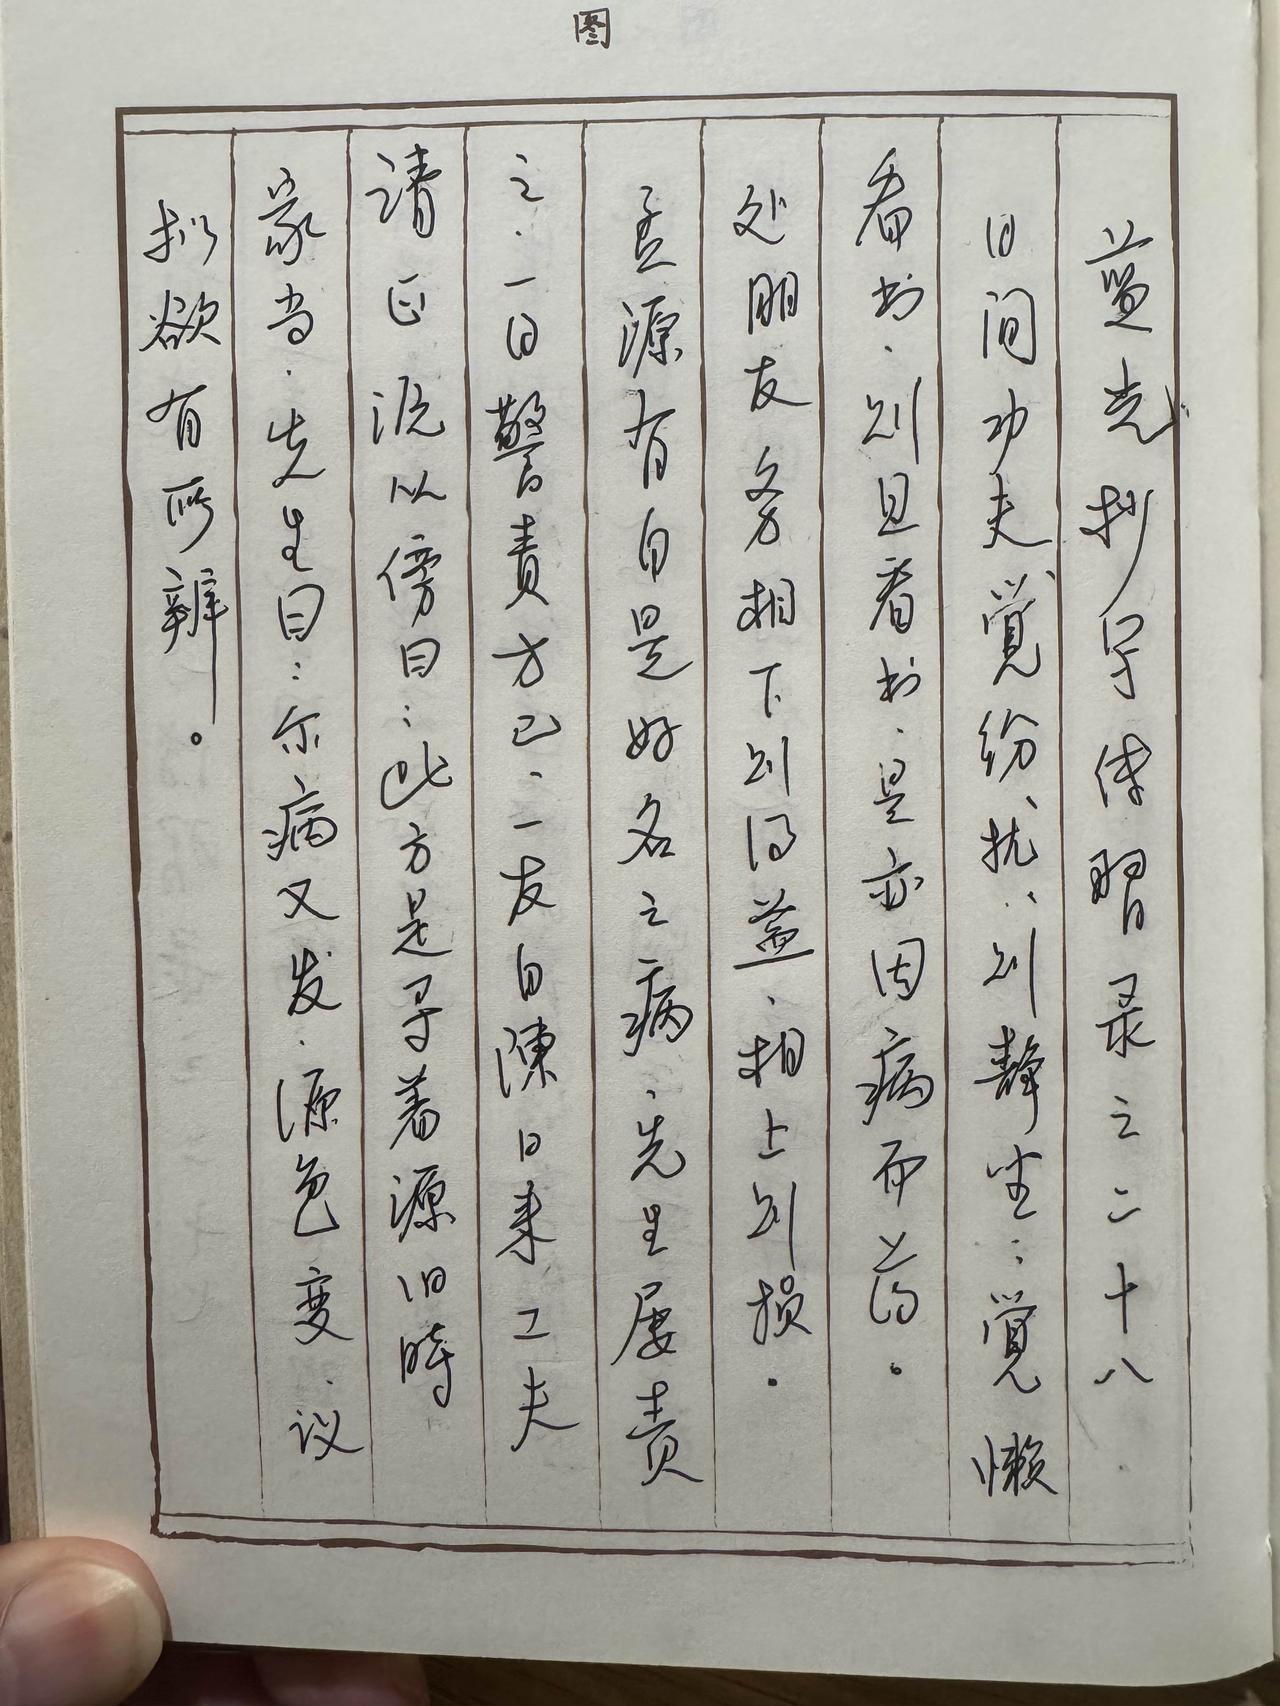 图
蓝光抄字传习录之二十八
日间功夫觉纷扰、则静坐；觉懒
看书、则且看书、是亦因病而药。
处朋友务相下则得益、相上则损。
孟源有自是好名之病、先生屡责
之、一日警责方已、一友自陳日来工夫
请正源从傍曰：此方是寻着源旧時
家当、先生曰：尔病又发、源色变、议
拟欲有所辨。